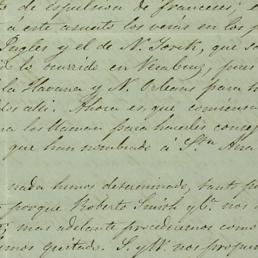 de espulsion de Franceses;
á este asunto los verás en los p
Ingles y el de N. York, que so
lo ocurrido en Veracruz, pues
la Havana y N. Orleans para
allí. Ahora es que comiensa
las llaman para hacerles
que han nombrado á Sta Ana
nada hemos determinado, tanto p
porque Roberto Smith y Ca. nos
mas adelante procederemos como
gustado. S. y W. nos